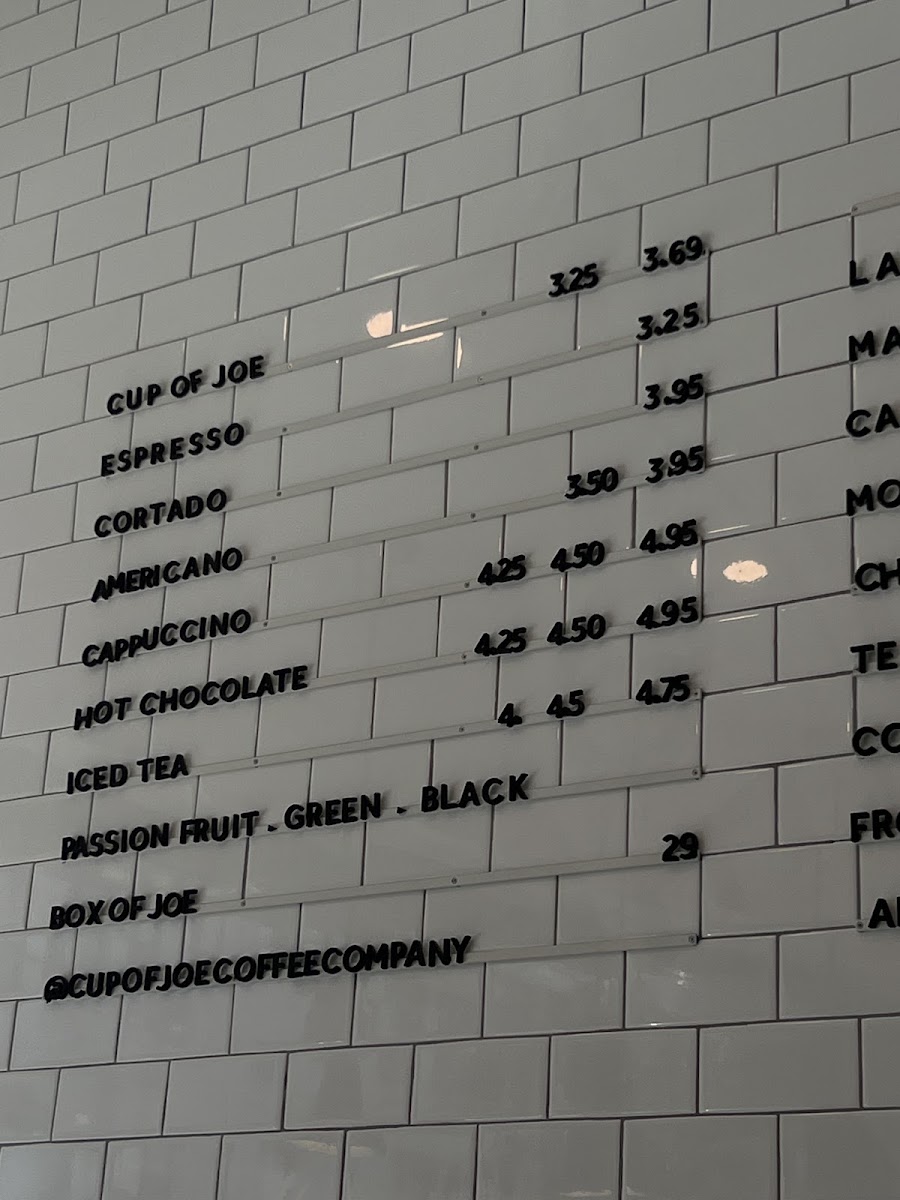 CUP OF JOE 3.25 3.69
ESPRESSO 3.25
CORTADO 3.95
AMERICANO 3.50 3.95
CAPPUCCINO 4.25 4.50 4.95
HOT CHOCOLATE 4.25 4.50 4.95
ICED TEA 4. 45 4.75
PASSION FRUIT . GREEN . BLACK
BOX OF JOE 29
@CUPOFJOECOFFEECOMPANY
LA
MA
CA
MO
CH
TE
CO
FRO